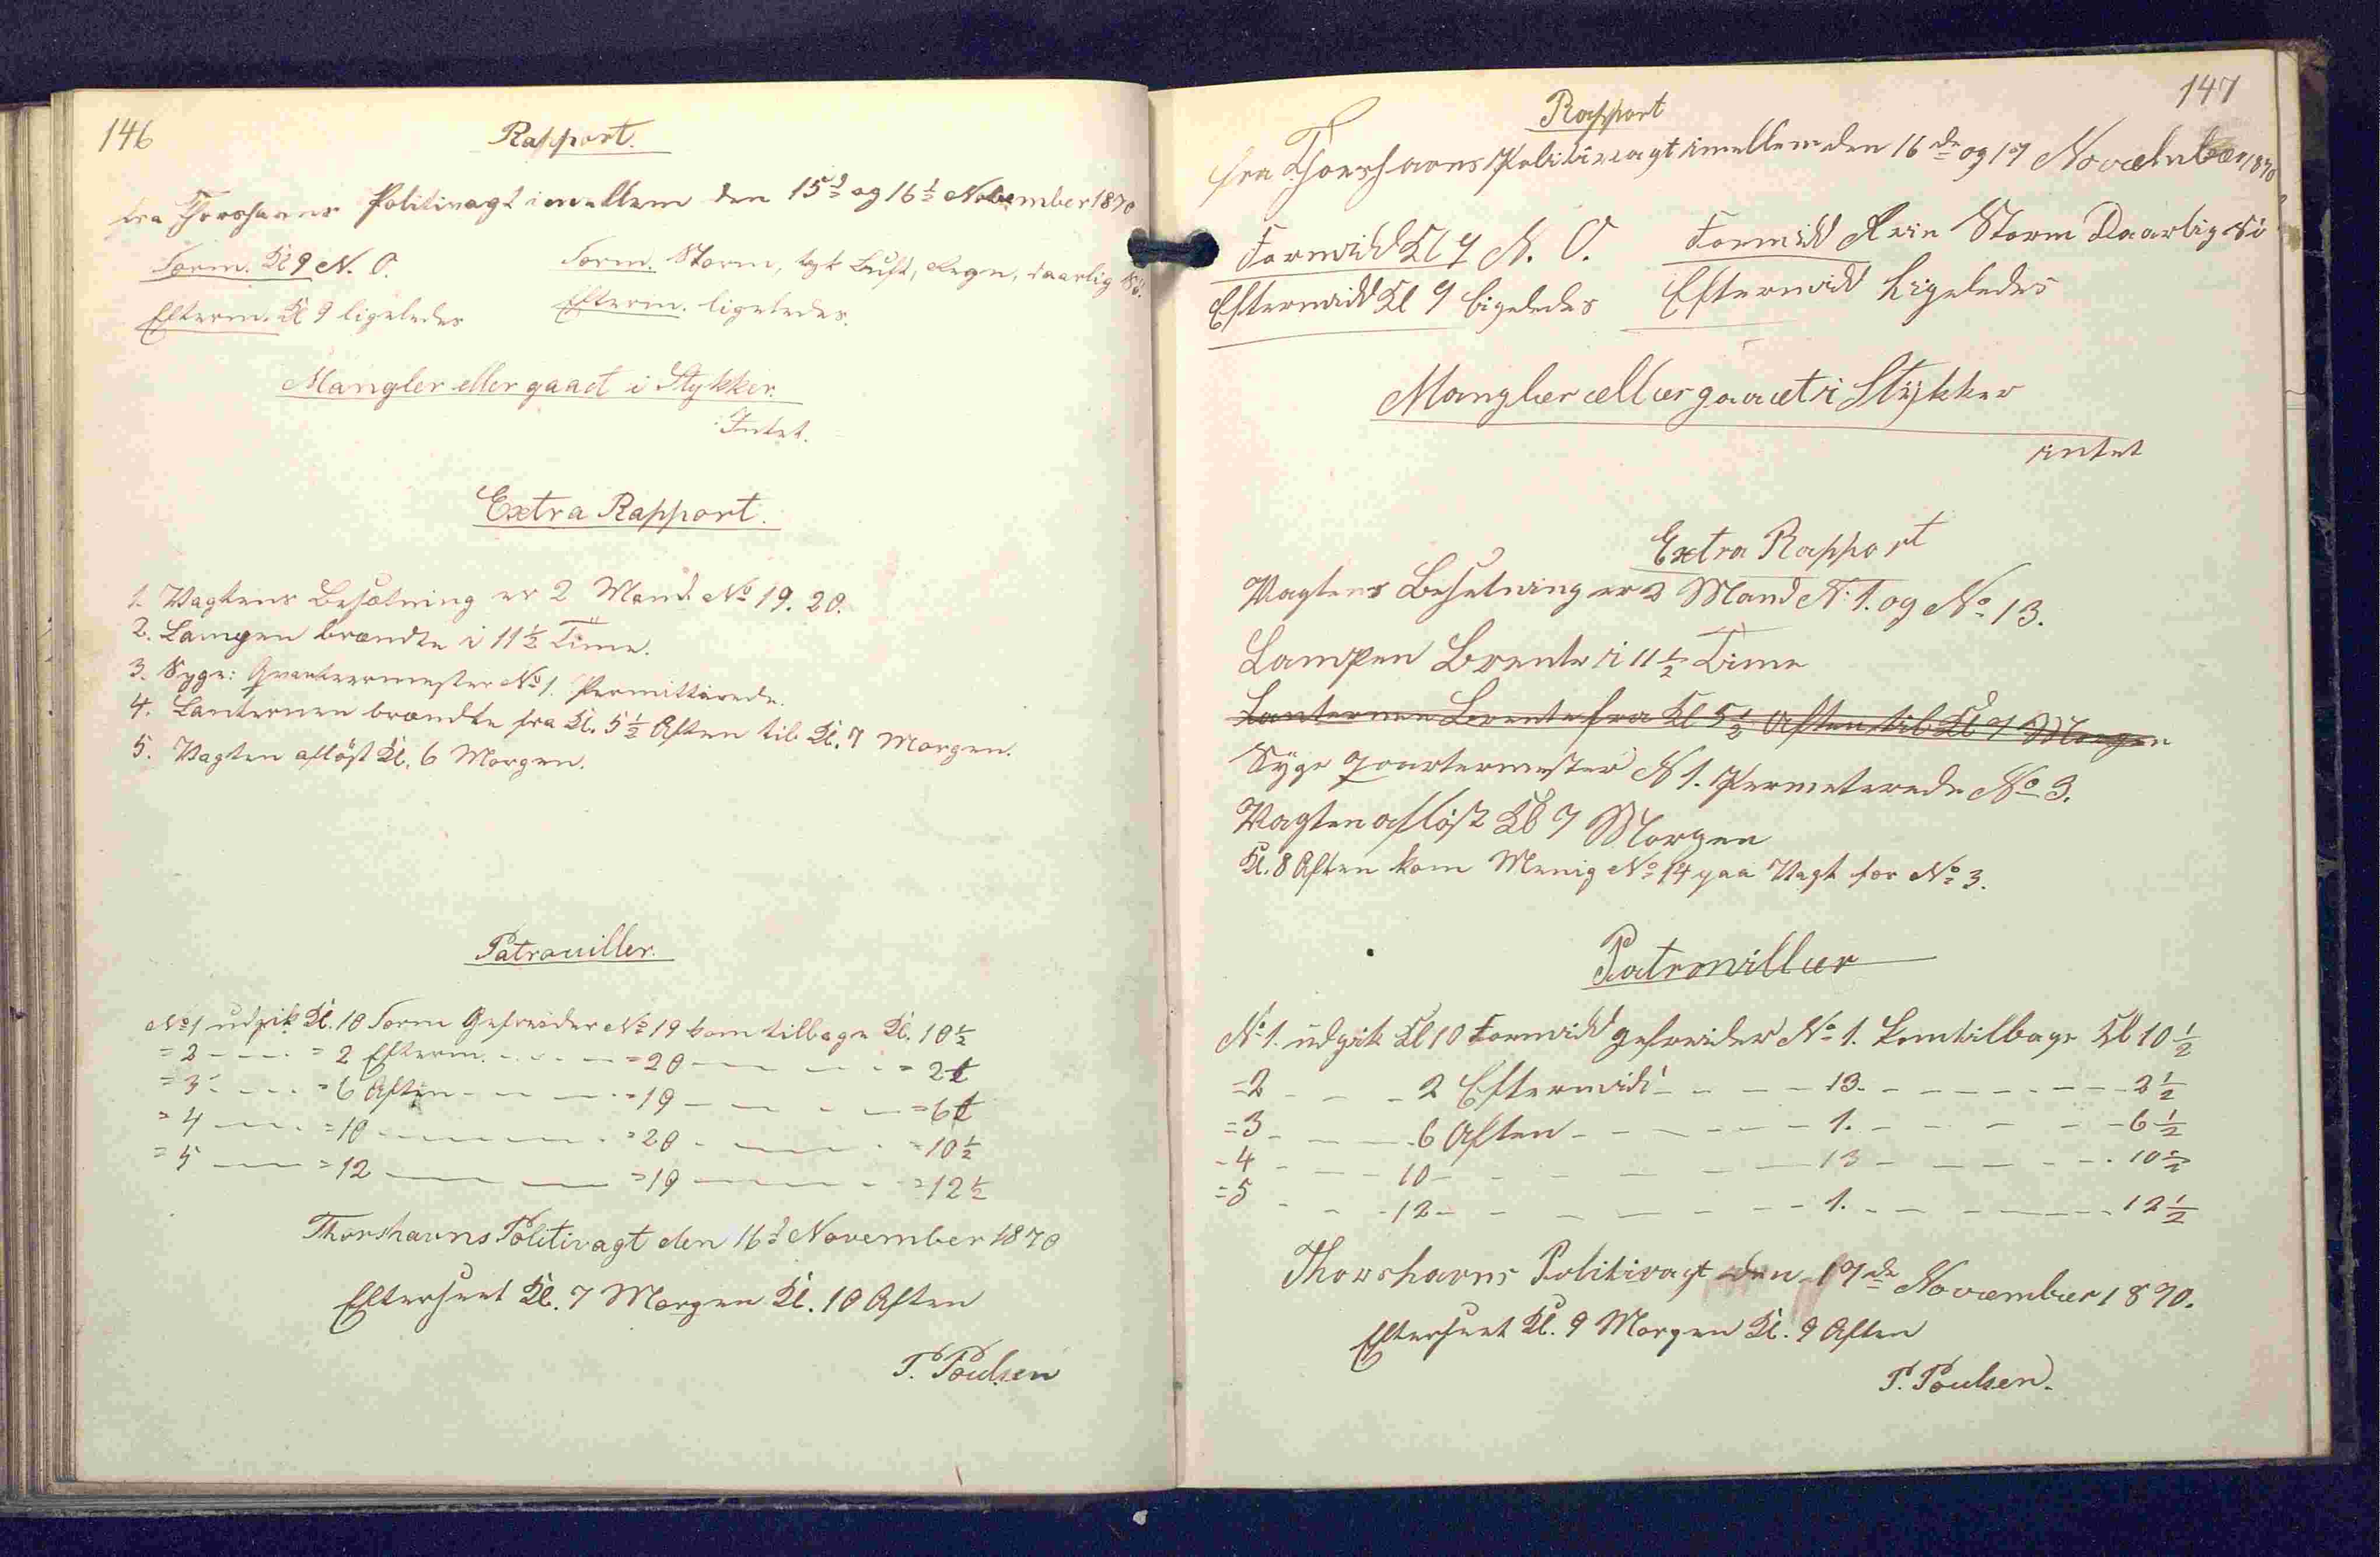 146
Rapport.
fra Thorshavns Politivagt imellem den 15d og 16d November 1870
Form. Kl 9 N. O.
Form. Storm, tyk Luft, Regn, daarlig Sö.
Efterm. Kl 9 ligeledes
Efterm. ligeledes.
Mangler eller gaaet i Stykker.
Intet.
Extra Rapport.
1. Vagtens Besætning er 2 Mand No 19. 20.
2. Lampen brændte i 11½ Time.
3. Syge: Qvarteermester No 1. Permitterede.
4. Lanternen brændte fra Kl. 5½ Aften til Kl. 7 Morgen.
5. Vagten aflöst Kl. 6 Morgen.
Patrouiller.
No 1 udgik Kl. 10 Form Gefreider No 19 kom tilbage Kl. 10½
= 2 - - - = 2 Efterm. - - - = 20 - - - = 2½
= 3 - - - = 6 Aften - - - = 19 - - - = 6½
= 4 - - - = 10 - - - = 20 - - - = 10½
= 5 - - - = 12 - - - = 19 - - - = 12½
Thorshavns Politivagt den 16d November 1870
Efterseet Kl. 7 Morgen Kl. 10 Aften
P. Poulsen
147
Rapport
fra Thorshavns Politivagt imellem den 16de og 17 Novæmbær 1870
Formidd Kl 9 N. O.
Formidd Storm Daarlig Sö
Eftermidd Kl 9 ligeledes
Eftermidd Ligeledes
Manglær ællær gaaæt i Stÿkker
intet
Extra Rapport
Vagtens Besetning er 2 Mand N. 1. og No 13.
Lampen Brente i 11½ Time
Lanternen Brente fra Kl 5½ Aften til Kl 7 Morgen
Syge qvartermester N 1. Permeterede No 3.
Vagten aflöst Kl 7 Morgen
Kl. 8 Aften kom Menig No 14 paa Vagt for No 3.
Patrouillær
No 1. udgik Kl 10 Formidd gefreider No 1. komtilbage Kl 10½
= 2 - - - 2 Eftermidd - - - 13. - - - 2½
= 3 - - - 6 Aften - - - 1. - - - 6½
- 4 - - - 10 - - - 13 - - - 10½
= 5 - - - 12 - - - 1. - - - 12½
Thorshavns Politivagt den 17de Novæmbær 1870.
Efterseet Kl. 9 Morgen Kl. 9 Aften
P. Poulsen.